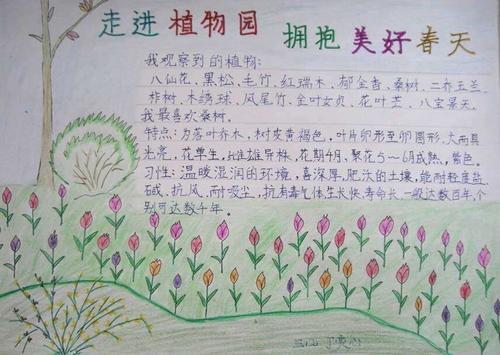 走进植物园 拥抱美好春天
我观察到的植物:
八仙花、黑松、毛竹、红瑞木、郁金香、桑树、二乔玉兰
柞树、木绣球、凤尾竹、金叶女贞、花叶芒、八宝景天。
我最喜欢桑树。
特点:为落叶乔木,树皮黄褐色。叶片卵形至卵圆形,大而具
光亮,花单生,雌雄异株,花期4月,聚花5~6月成熟,紫色。
习性:温暖湿润的环境,喜深厚,肥沃的土壤,能耐轻度盐
碱、抗风、耐吸尘,抗有毒气体生长快,寿命长,一般达数百年,个
别可达数千年。